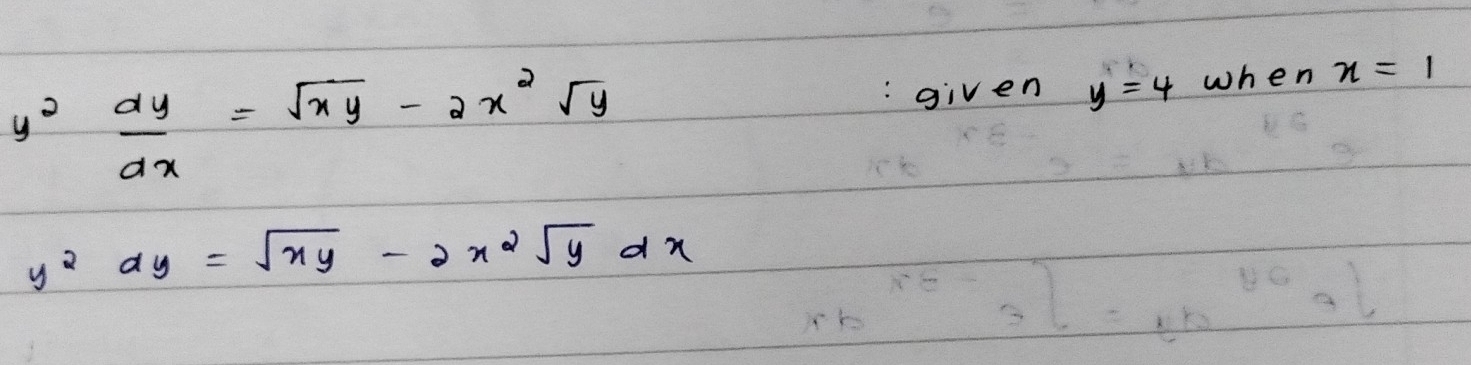 y² dy/dx = √xy - 2x² √y : given y = 4 when x = 1
y² dy = √xy - 2x² √y dx